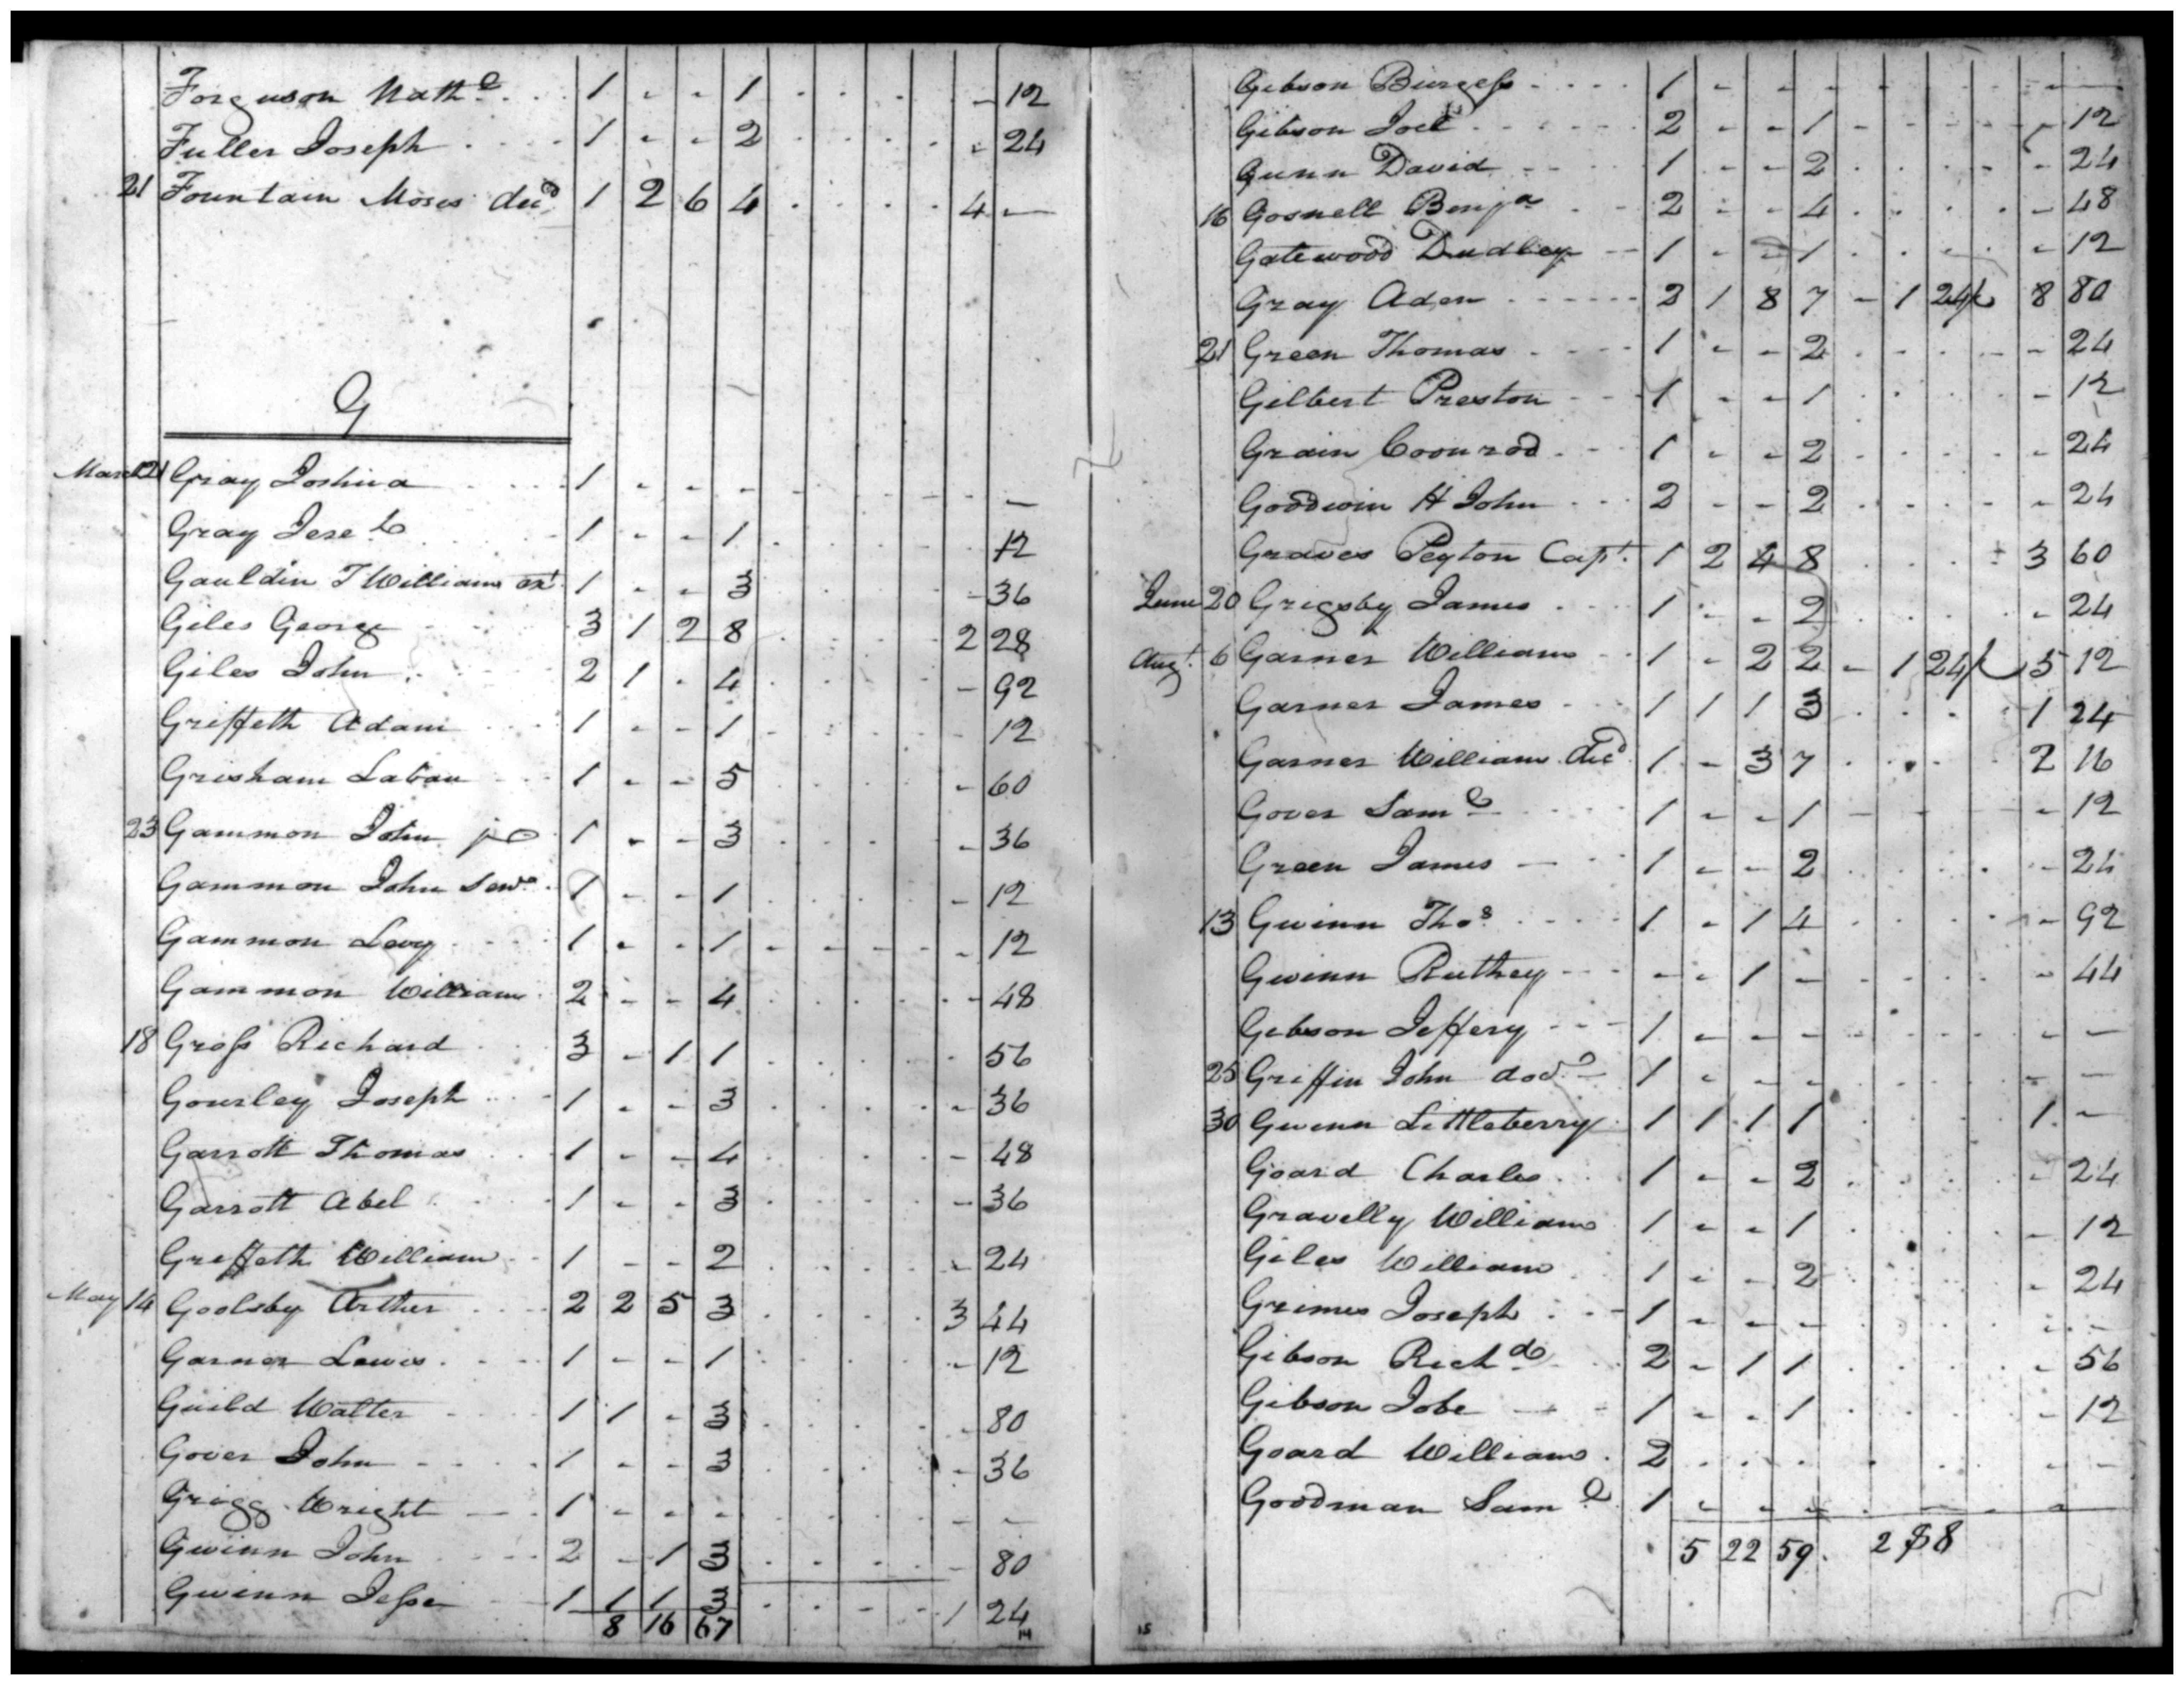 Forguson Nath^l 1 - - 1 - 12
Fuller Joseph 1 - - 2 - 24
21 Fountain Moses dec^d 1 2 6 4 4 -
G
March 21 Gray Joshua 1 - - - -
Gray Jese 1 - - 1 12
Gauldin J William 1 - - 3 - 36
Giles George 3 1 2 8 2 28
Giles John 2 1 - 4 - 92
Griffeth Adam 1 - - 1 - 12
Grisham Laban 1 - - 5 - 60
23 Gammon John 1 - - 3 - 36
Gammon John Sen^r 1 - - 1 - 12
Gammon Levy 1 - - 1 - 12
Gammon William 2 - - 4 - 48
18 Gross Richard 3 - 1 1 - 56
Gourley Joseph 1 - - 3 - 36
Garrott Thomas 1 - - 4 - 48
Garrott Abel 1 - - 3 - 36
Greffeth William 1 - - 2 - 24
May 14 Goolsby Arther 2 2 5 3 3 44
Garner Lewis 1 - - 1 - 12
Guild Walter 1 1 - 3 - 80
Gover John 1 - - 3 - 36
Grigg Wright 1 - - - - -
Gwinn John 2 - 1 3 - 80
Gwinn Jesse 1 1 1 3 1 24
8 16 67
14
Gibson Burgess 1 - - - - -
Gibson Joel 2 - - 1 - 12
Gunn David 1 - - 2 - 24
16 Gosnell Benj^a 2 - - 4 - 48
Gatewood Dudley 1 - - 1 - 12
Gray Aden 2 1 8 7 - 1 24 8 80
21 Green Thomas 1 - - 2 - 24
Gilbert Preston 1 - - 1 - 12
Grain Coonrod 1 - - 2 - 24
Goodwin H John 2 - - 2 - 24
Graves Peyton Cap^t. 1 2 4 8 3 60
June 20 Grigsby James 1 - - 2 - 24
Aug^t. 6 Garner William 1 - 2 2 - 1 24 5 12
Garner James 1 1 1 3 1 24
Garner William dec^d 1 - 3 7 2 16
Gover Sam^l 1 - - 1 - 12
Green James 1 - - 2 - 24
13 Gwinn Tho^s 1 - 1 4 - 92
Gwinn Ruthey - - 1 - - 44
Gibson Jeffery 1 - - - - -
25 Griffin John 1 - - - - -
30 Gwinn Littleberry 1 1 1 1 1 -
Goard Charles 1 - - 2 - 24
Gravelly William 1 - - 1 - 12
Giles William 1 - - 2 - 24
Grimes Joseph 1 - - - - -
Gibson Rich^d 2 - 1 1 - 56
Gibson Jobe 1 - - 1 - 12
Goard William 2 - - - - -
Goodman Sam^l 1 - - - - -
5 22 59 2 $8
15